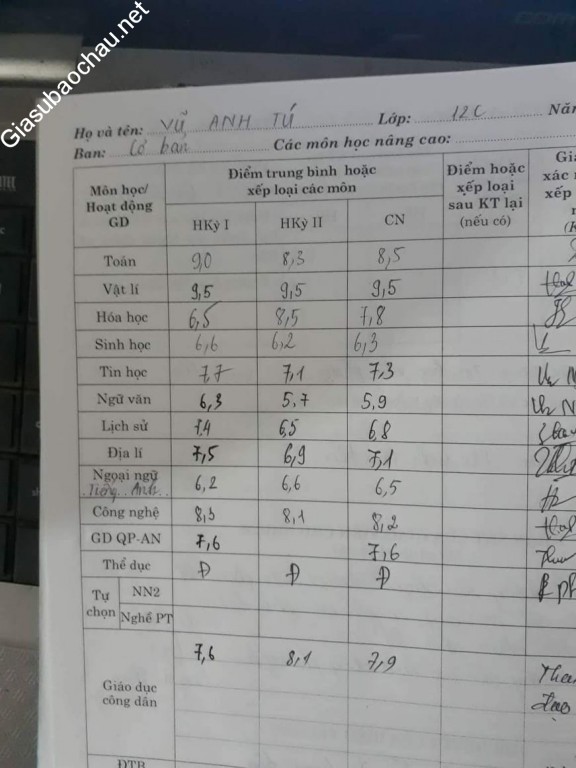 Giasubaochau.net
Họ và tên: VŨ ANH TÚ Lớp: 12C Năm
Ban: Cơ bản Các môn học nâng cao:
Môn học/ Hoạt động GD Điểm trung bình hoặc xếp loại các môn Điểm hoặc xếp loại sau KT lại (nếu có)
HKỳ I HKỳ II CN
Toán 9,0 8,3 8,5
Vật lí 9,5 9,5 9,5
Hóa học 6,5 8,5 7,8
Sinh học 6,6 6,2 6,3
Tin học 7,7 7,1 7,3
Ngữ văn 6,3 5,7 5,9
Lịch sử 7,4 6,5 6,8
Địa lí 7,5 6,9 7,1
Ngoại ngữ
Tiếng Anh 6,2 6,6 6,5
Công nghệ 8,3 8,1 8,2
GD QP-AN 7,6 7,6
Thể dục Đ Đ Đ
Tự chọn NN2
Nghề PT
Giáo dục công dân 7,6 8,1 7,9
ĐTB